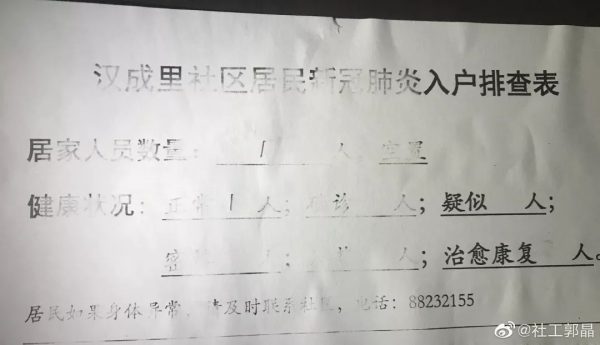 汉成里社区居民新冠肺炎入户排查表
居家人员数量: 1 人, 空置
健康状况: 正常 1 人; 确诊 人; 疑似 人;
密 人; 人; 治愈康复 人。
居民如果身体异常, 请及时联系社区, 电话: 88232155
@社工郭晶